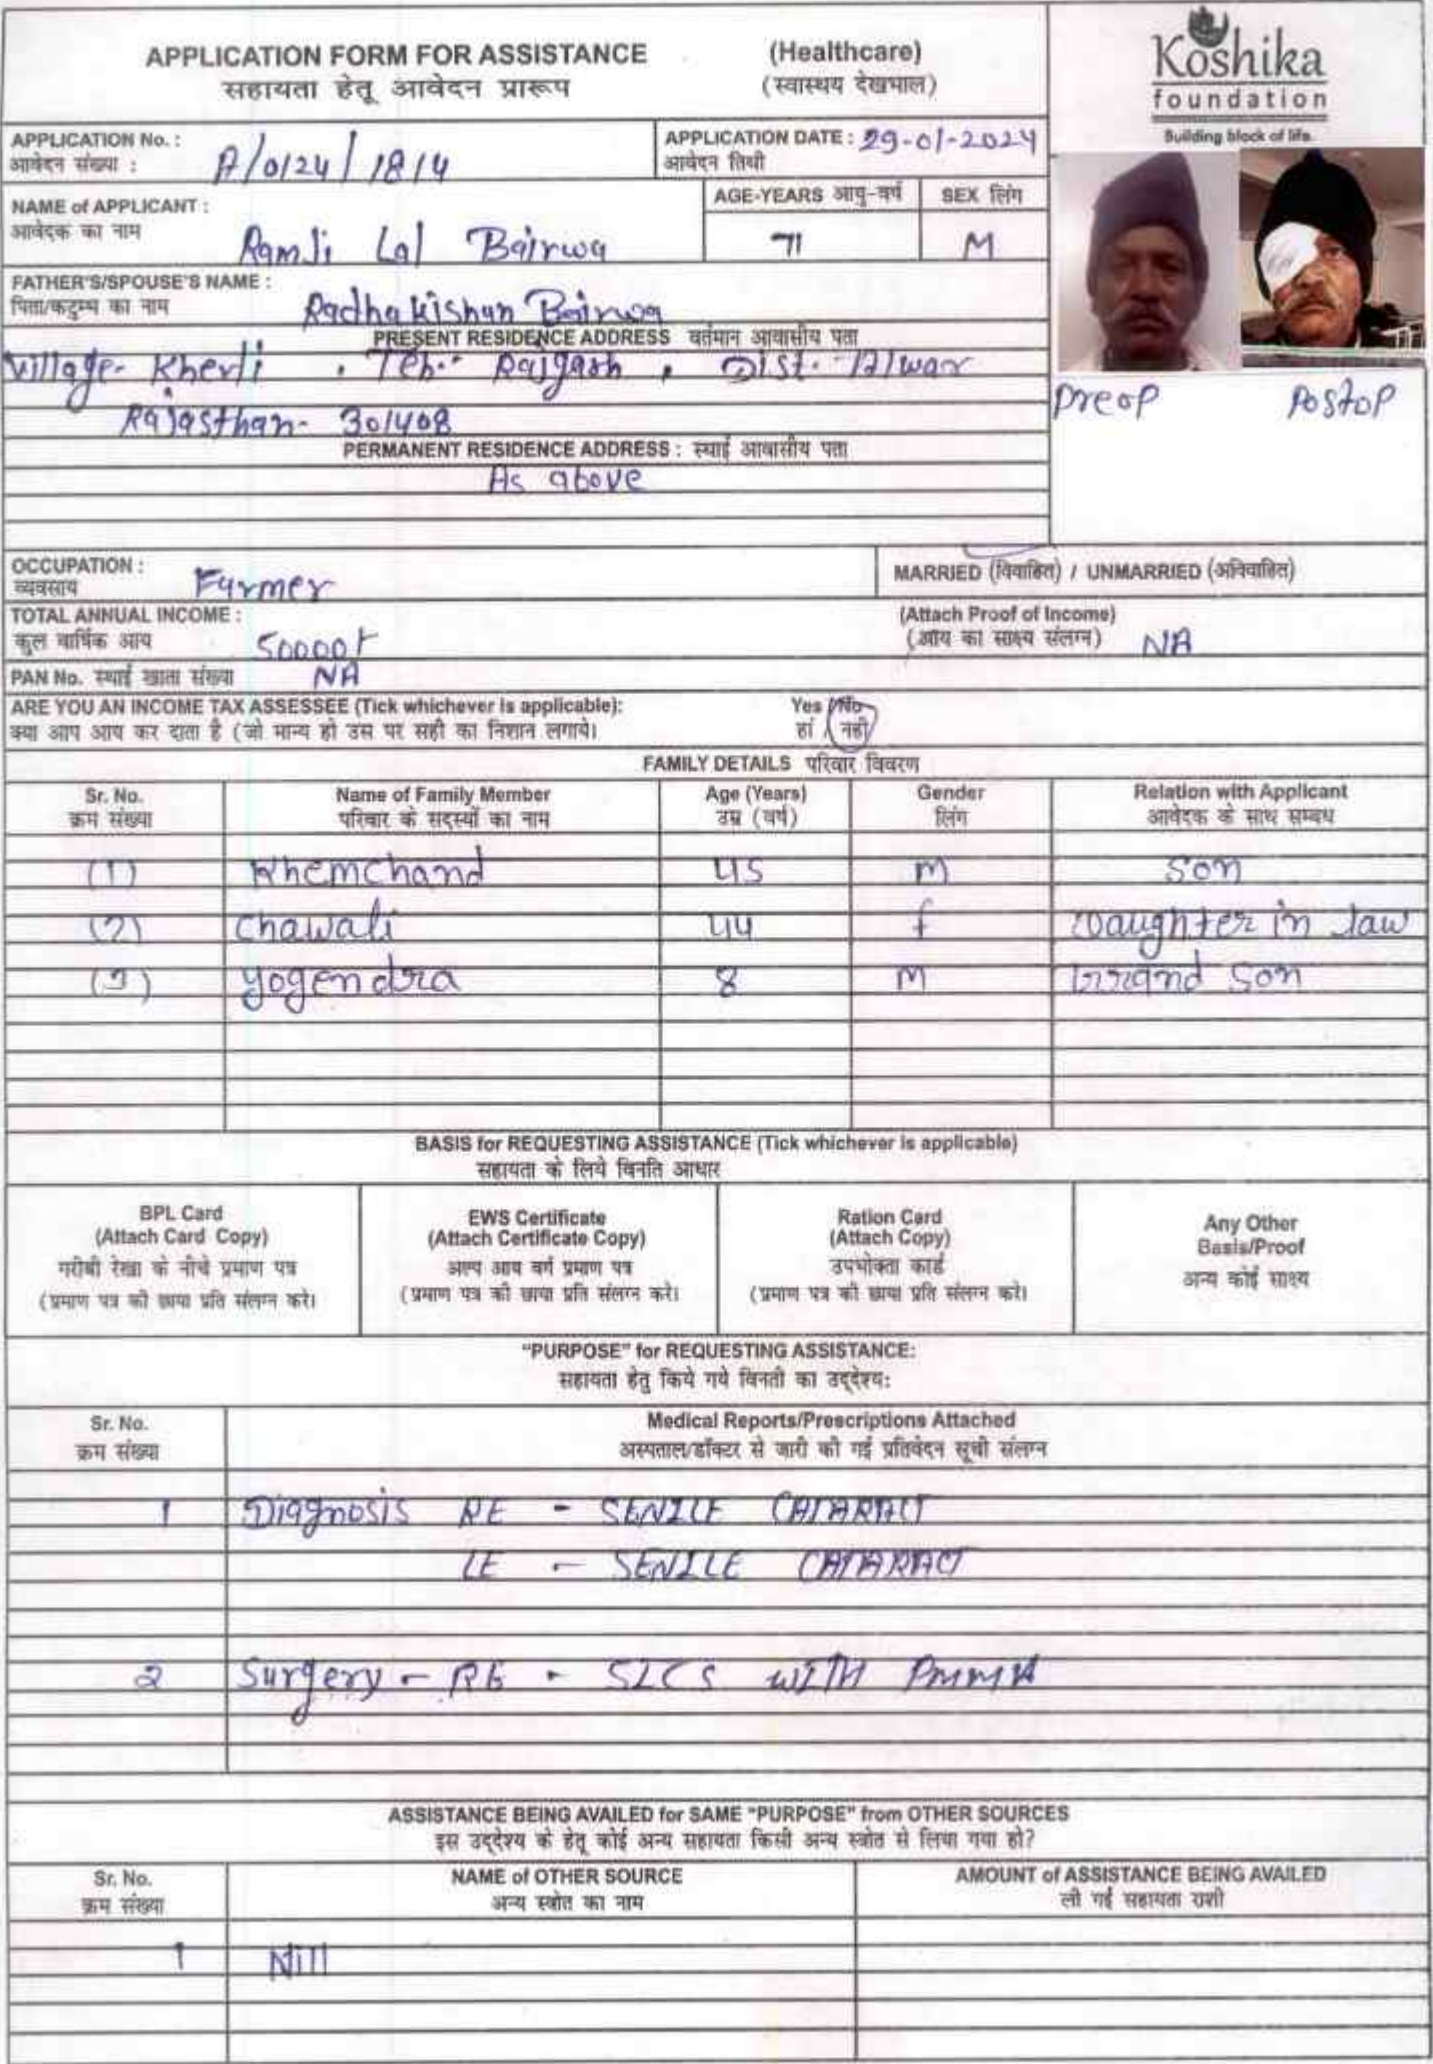 APPLICATION FORM FOR ASSISTANCE (Healthcare)
सहायता हेतू आवेदन प्रारूप (स्वास्थय देखभाल)
Koshika
foundation
Building block of life.
APPLICATION No. : A/0124/1814
आवेदन संख्या :
APPLICATION DATE : 29-01-2024
आवेदन तिथी
NAME of APPLICANT : Ramji Lal Bairwa
आवेदक का नाम
AGE-YEARS आयु-वर्ष 71
SEX लिंग M
FATHER'S/SPOUSE'S NAME : Radhakishan Bairwa
पिता/कटुम्ब का नाम
PRESENT RESIDENCE ADDRESS वर्तमान आवासीय पता
Village- Kherli , Teh.- Rajgarh , Dist.- Alwar
Rajasthan- 301408
Preop Postop
PERMANENT RESIDENCE ADDRESS : स्थाई आवासीय पता
As above
OCCUPATION : Farmer
व्यवसाय
MARRIED (विवाहित) / UNMARRIED (अविवाहित)
TOTAL ANNUAL INCOME :
कुल वार्षिक आय
(Attach Proof of Income)
(आय का साक्ष्य संलग्न) NA
PAN No. स्थाई खाता संख्या NA
ARE YOU AN INCOME TAX ASSESSEE (Tick whichever is applicable): Yes / No
क्या आप आय कर दाता है (जो मान्य हो उस पर सही का निशान लगाये। हां / नही
FAMILY DETAILS परिवार विवरण
Sr. No. Name of Family Member Age (Years) Gender Relation with Applicant
क्रम संख्या परिवार के सदस्यों का नाम उम्र (वर्ष) लिंग आवेदक के साथ सम्बध
(1) Khemchand 45 M Son
(2) Chawali 44 f Daughter in law
(3) Yogendra 8 M Grand Son
BASIS for REQUESTING ASSISTANCE (Tick whichever is applicable)
सहायता के लिये विनति आधार
BPL Card
(Attach Card Copy)
गरीबी रेखा के नीचे प्रमाण पत्र
(प्रमाण पत्र की छाया प्रति संलग्न करे।
EWS Certificate
(Attach Certificate Copy)
अल्प आय वर्ग प्रमाण पत्र
(प्रमाण पत्र की छाया प्रति संलग्न करे।
Ration Card
(Attach Copy)
उपभोक्ता कार्ड
(प्रमाण पत्र की छाया प्रति संलग्न करे।
Any Other
Basis/Proof
अन्य कोई साक्ष्य
"PURPOSE" for REQUESTING ASSISTANCE:
सहायता हेतु किये गये विनती का उद्देश्य:
Sr. No. Medical Reports/Prescriptions Attached
क्रम संख्या अस्पताल/डॉक्टर से जारी की गई प्रतिवेदन सूची संलग्न
1 Diagnosis RE - SENILE CATARACT
LE - SENILE CATARACT
2 Surgery - RE - SICS WITH PMMA
ASSISTANCE BEING AVAILED for SAME "PURPOSE" from OTHER SOURCES
इस उद्देश्य के हेतू कोई अन्य सहायता किसी अन्य स्त्रोत से लिया गया हो?
Sr. No. NAME of OTHER SOURCE AMOUNT of ASSISTANCE BEING AVAILED
क्रम संख्या अन्य स्त्रोत का नाम ली गई सहायता राशी
1 Nill